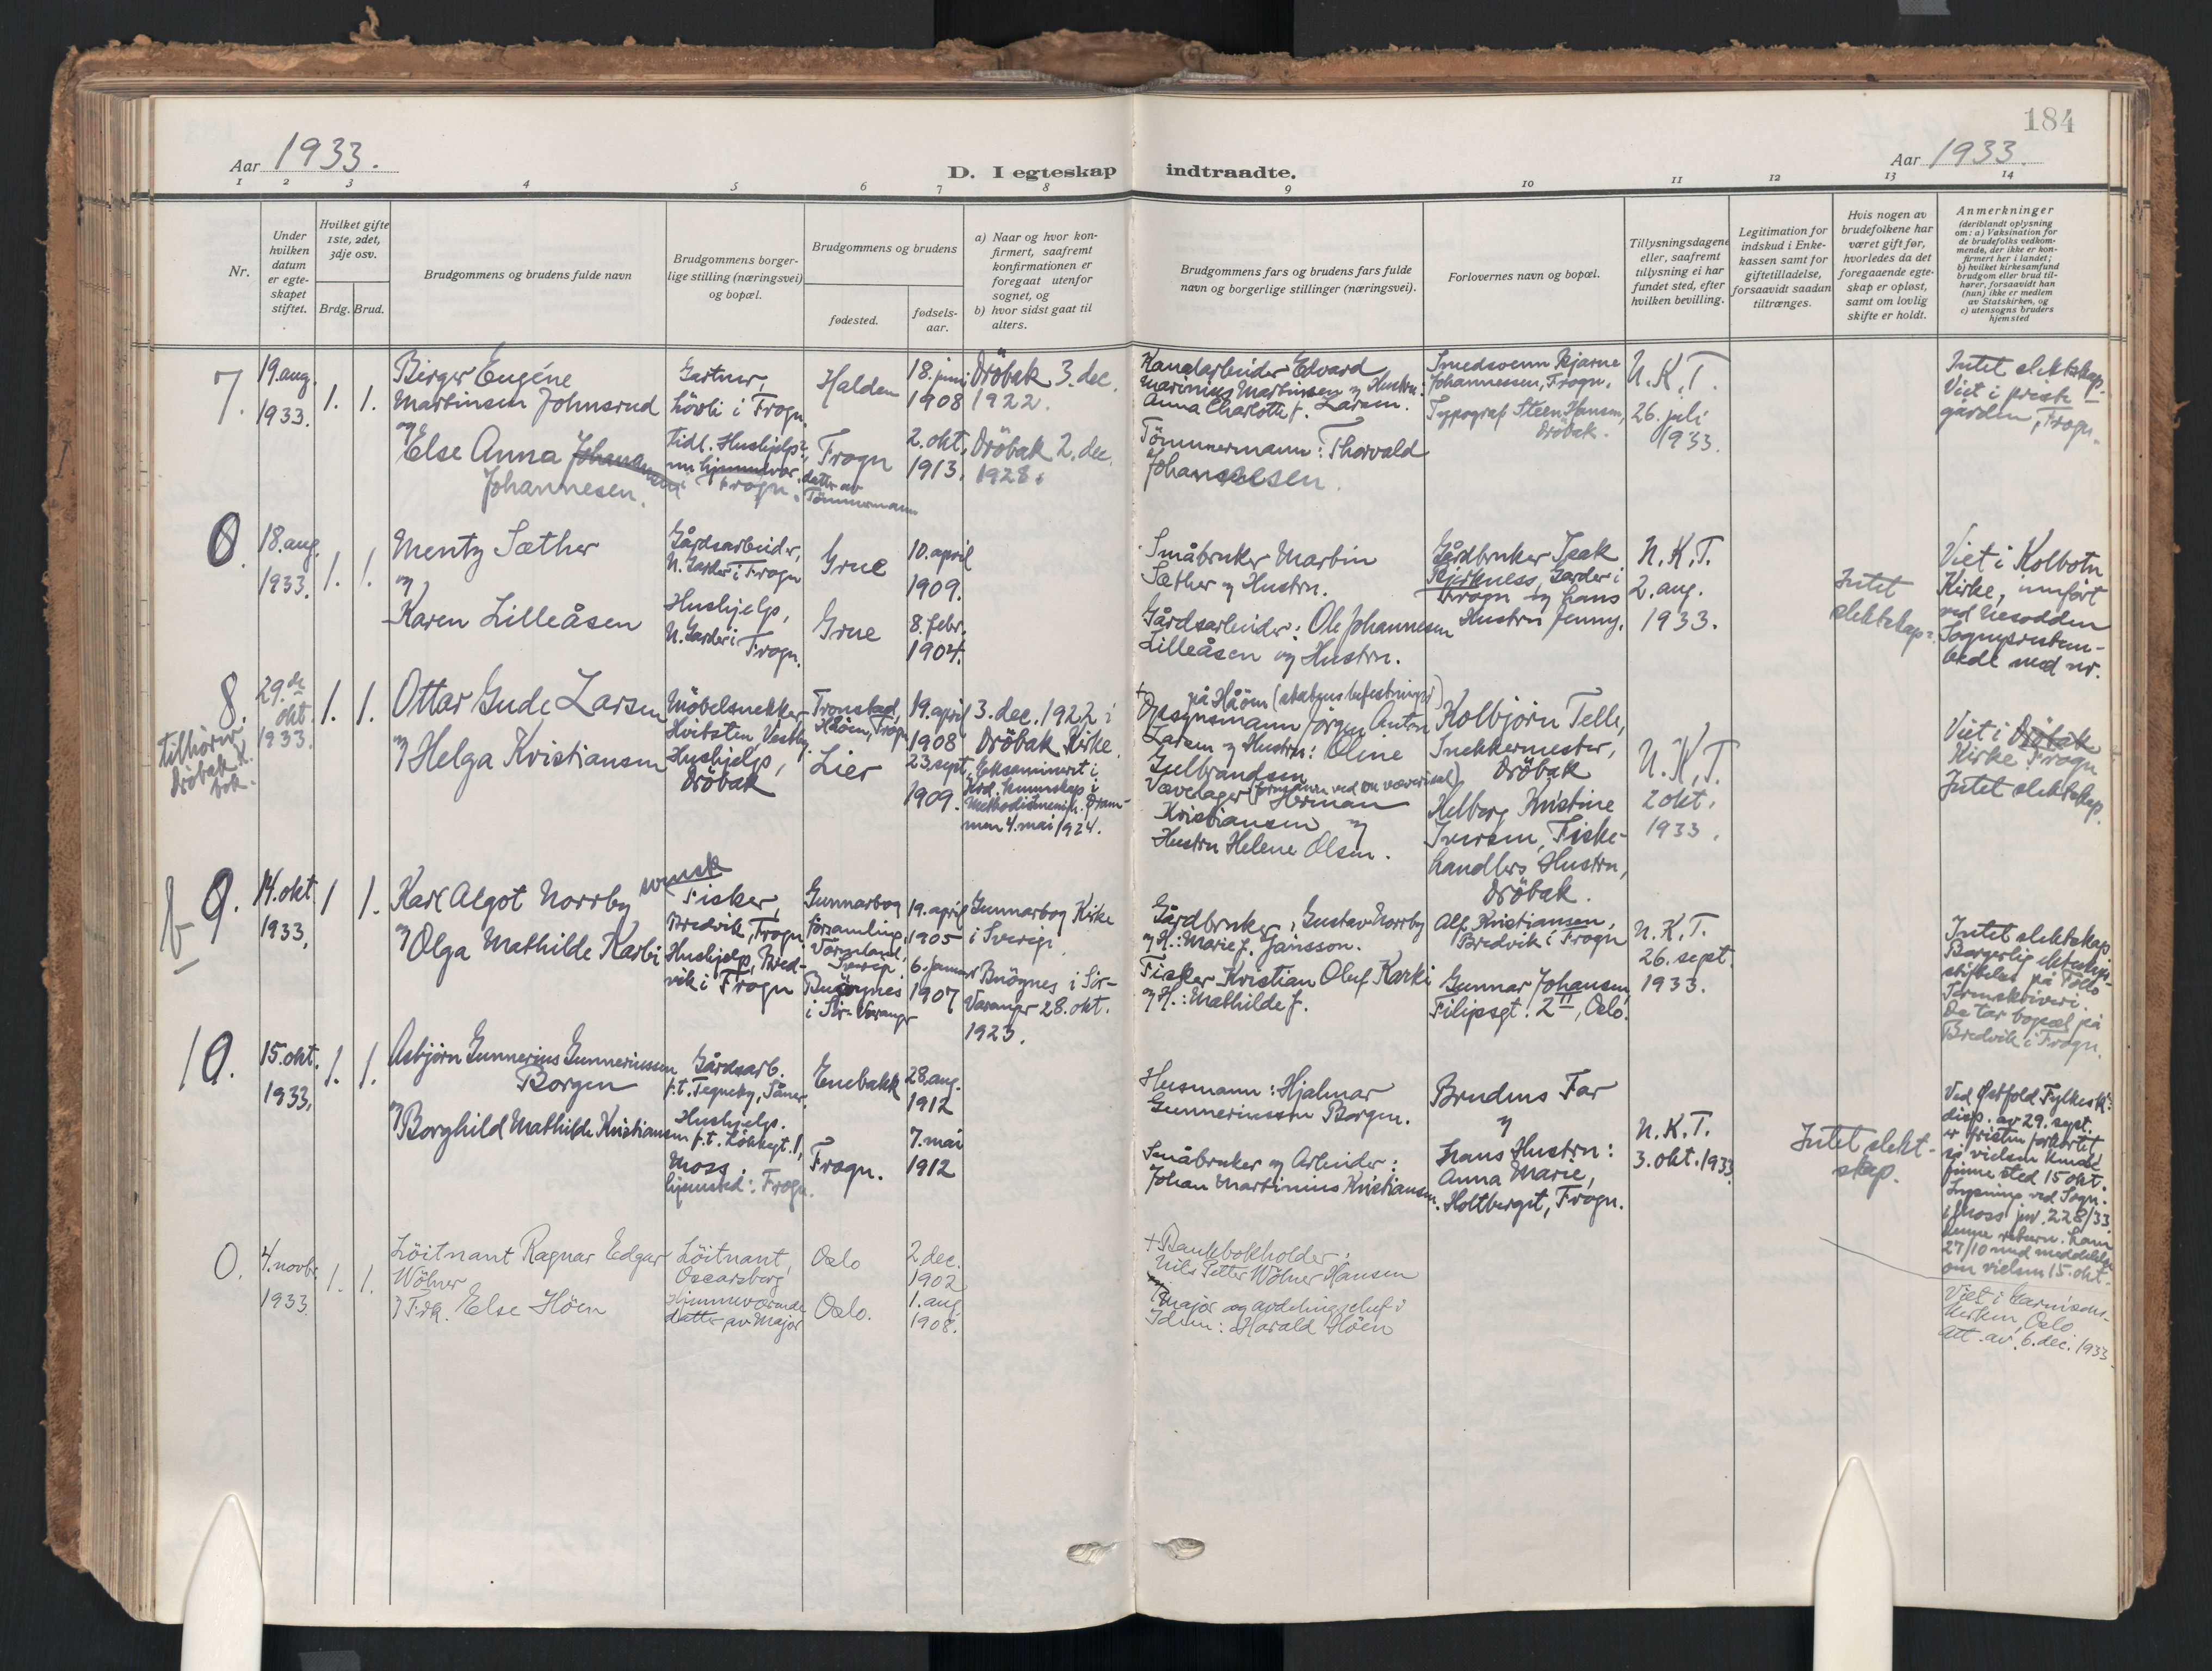 184
Aar 1933.
D. I egteskap indtraadte.
Aar 1933.
1 2 3 4 5 6 7 8 9 10 11 12 13 14
Nr.
Under
hvilken
datum
er egte-
skapet
stiftet.
Hvilket gifte
1ste, 2det,
3dje osv.
Brdg. Brud.
Brudgommens og brudens fulde navn
Brudgommens borger-
lige stilling (næringsvei)
og bopæl.
Brudgommens og brudens
fødested.
fødsels-
aar.
a) Naar og hvor kon-
firmert, saafremt
konfirmationen er
foregaat utenfor
sognet, og
b) hvor sidst gaat til
alters.
Brudgommens fars og brudens fars fulde
navn og borgerlige stillinger (næringsvei).
Forlovernes navn og bopæl.
Tillysningsdagene
eller, saafremt
tillysning ei har
fundet sted, efter
hvilken bevilling.
Legitimation for
indskud i Enke-
kassen samt for
giftetilladelse,
forsaavidt saadan
tiltrænges.
Hvis nogen av
brudefolkene har
været gift før,
hvorledes da det
foregaaende egte-
skap er opløst,
samt om lovlig
skifte er holdt.
Anmerkninger
(deriblandt oplysning
om: a) Vaksination for
de brudefolks vedkom-
mende, der ikke er kon-
firmert her i landet;
b) hvilket kirkesamfund
brudgom eller brud til-
hører, forsaavidt han
(hun) ikke er medlem
av Statskirken, og
c) utensogns bruders
hjemsted
7.
19. aug.
1933.
1. 1.
Birger Eugéne
Martinsen Johnsrud
og
Else Anna Johannesen
Johannesen.
Gartner,
Lövli i Frogn.
tidl. Hushjelp,
nu hjemmevær.
Frogn.
datter av
Tömmermann
Halden
Frogn
18. juni
1908
2. okt.
1913.
Dröbak 3. dec.
1922.
Dröbak 2. dec.
1928.
Kanalarbeider Edvard
Marinius Martinsen og Hustru:
Anna Charlotte f. Larsen.
Tömmermann: Thorvald
Johannesen.
Smedsvenn Bjarne
Johannessen, Frogn.
Typograf Steen Hansen,
Dröbak.
N.K.T.
26. juli
1933.
Intet slektskap.
Viet i preste-
gården, Frogn.
0.
18. aug.
1933.
1. 1.
Mentz Sæther
og
Karen Lilleåsen
Gårdsarbeider,
N. Garder i Frogn
Hushjelp,
N. Garder i
Frogn.
Grue
Grue
10. april
1909.
8. febr.
1904.
Småbruker Martin
Sæther og Hustru.
Gårdsarbeider: Ole Johannesen
Lilleåsen og Hustru.
Gårdbruker Isak
Kirkness, Garder i
Frogn og hans
Hustru Jenny.
N.K.T.
2. aug.
1933.
Intet
slektskap.
Viet i Kolbotn
Kirke, innført
ved Nesodden
Sogneprestem-
bede med nr.
8.
tilhører
Dröbak k.
bok.
29.de
okt.
1933.
1. 1.
Ottar Gude Larsen
og Helga Kristiansen
Möbelsnekker
Hvitsten, Vestby.
Hushjelp,
Dröbak
Tronstad,
Håöen, Frogn
Lier
19. april
1908
23. sept.
1909.
3. dec. 1922 i
Dröbak Kirke
Eksaminert i
Krd. kunnskap i
Methodistmenigh. Dram-
men 4. mai 1924.
+ på Håöen (statens befestninger)
Opsynsmann Jörgen Anton
Larsen og Hustru: Oline
Gulbrandsen
Vævelager (formann ved en væveri)
Herman
Kristiansen og
Hustru Helene Olsen.
Kolbjörn Telle,
Snekkermester,
Dröbak
Helborg Kristine
Iversen, Fiske-
handlers Hustru,
Dröbak.
N.K.T.
2 okt.
1933.
Viet i Dröbak
Kirke Frogn
Intet slektskap.
b 9.
14. okt
1933.
1 1.
Karl Algot Norrby svensk
og Olga Mathilde Karbi
Fisker,
Bredvik, Frogn
Hushjelp, Bred-
vik i Frogn
Gunnarskog
Församling,
Värmland,
Sverige
Bugöynes
i Sör-Varanger
19. april
1905
6. januar
1907
Gunnarskog Kirke
i Sverige
Bugöynes i Sör-
Varanger 28. okt.
1923.
Gårdbruker, Gustav Norrby
og H.: Marie f. Jansson.
Fisker Kristian Oluf Karki
og H.: Mathilde f.
Alf Kristiansen,
Bredvik i Frogn
Gunnar Johansen
Filipsgt. 2 II, Oslo.
N.K.T.
26. sept.
1933.
Intet slektskap.
Borgerlig ekteskap
stiftelse på Follo
Sorenskriveri.
De tar bopæl på
Bredvik i Frogn.
10.
15. okt.
1933.
1. 1.
Asbjörn Gunnerius Gunneriussen
Borgen
og Borghild Mathilde Kristiansen
Gårdsarb.
f.t. Tegneby, Såner.
Hushjelp.
f.t. Løkkegt. 1,
Moss.
hjemsted: Frogn.
Enebakk
Frogn.
28. aug.
1912
7. mai
1912
Husmann: Hjalmar
Gunneriussen Borgen.
Småbruker og Arbeider:
Johan Martinius Kristiansen.
Brudens Far
og
hans Hustru:
Anna Marie,
Holtberget, Frogn.
N.K.T.
3. okt. 1933
Intet slekt-
skap.
Ved Østfold Fylkesk.
disp. av 29. sept.
er fristen forkortet
så vielsen kunde
finne sted 15 okt.
Lysning ved Sogn.
i Moss jnr. 228/33
27/10 med meddelelse
om vielsen 15. okt.
0.
4. novbr.
1933.
1. 1.
Löitnant Ragnar Edgar
Wölner
og Frk. Else Höen
Löitnant,
Oscarsborg
Hjemmeværende
datter av Major
Oslo
Oslo.
2 dec.
1902
1. aug.
1908.
+ Bankbokholder:
Nils Petter Wölner Hansen
Major og avdelingschef i
Idem: Harald Höen
Viet i Garnisons-
kirken, Oslo
Att. av 6. dec. 1933.